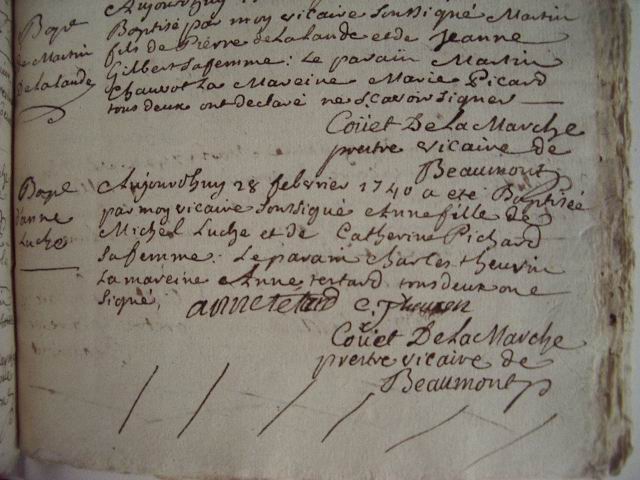 Bapt
de Martin
De la Lande
Aujourdhuy
Baptisé par moy vicaire soussigné Martin
fils de Pierre de la Lande et de Jeanne
Gilbert sa femme: Le parain Martin
Chauvot La Mareine Marie Picard
tous deux ont declaré ne scavoir signer
Coüet De La Marche
prestre vicaire de
Beaumont
Bapt
d'anne
Luche
Aujourdhuy 28 febvrier 1740 a eté Baptisée
par moy vicaire soussigné Anne fille de
Michel Luche et de Catherine Pichard
sa femme: Le parain Charles theurin
La mareine Anne tetard tous deux one
signé,
anne tetard C. Theuren
Coüet De La Marche
prestre vicaire de
Beaumont